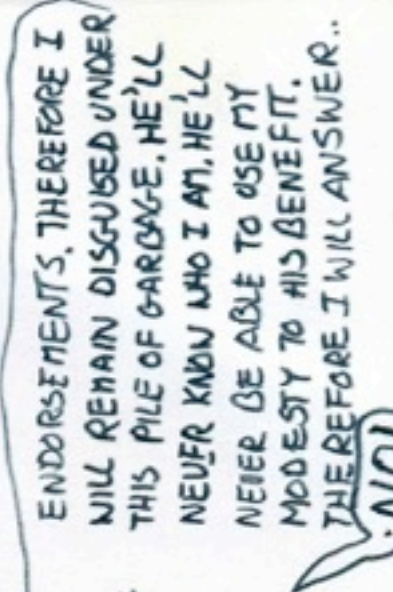 ENDORSEMENTS, THEREFORE I
WILL REMAIN DISGUISED UNDER
THIS PILE OF GARBAGE. HE'LL
NEVER KNOW WHO I AM, HE'LL
NEVER BE ABLE TO USE MY
MODESTY TO HIS BENEFIT.
THEREFORE I WILL ANSWER..
NO!